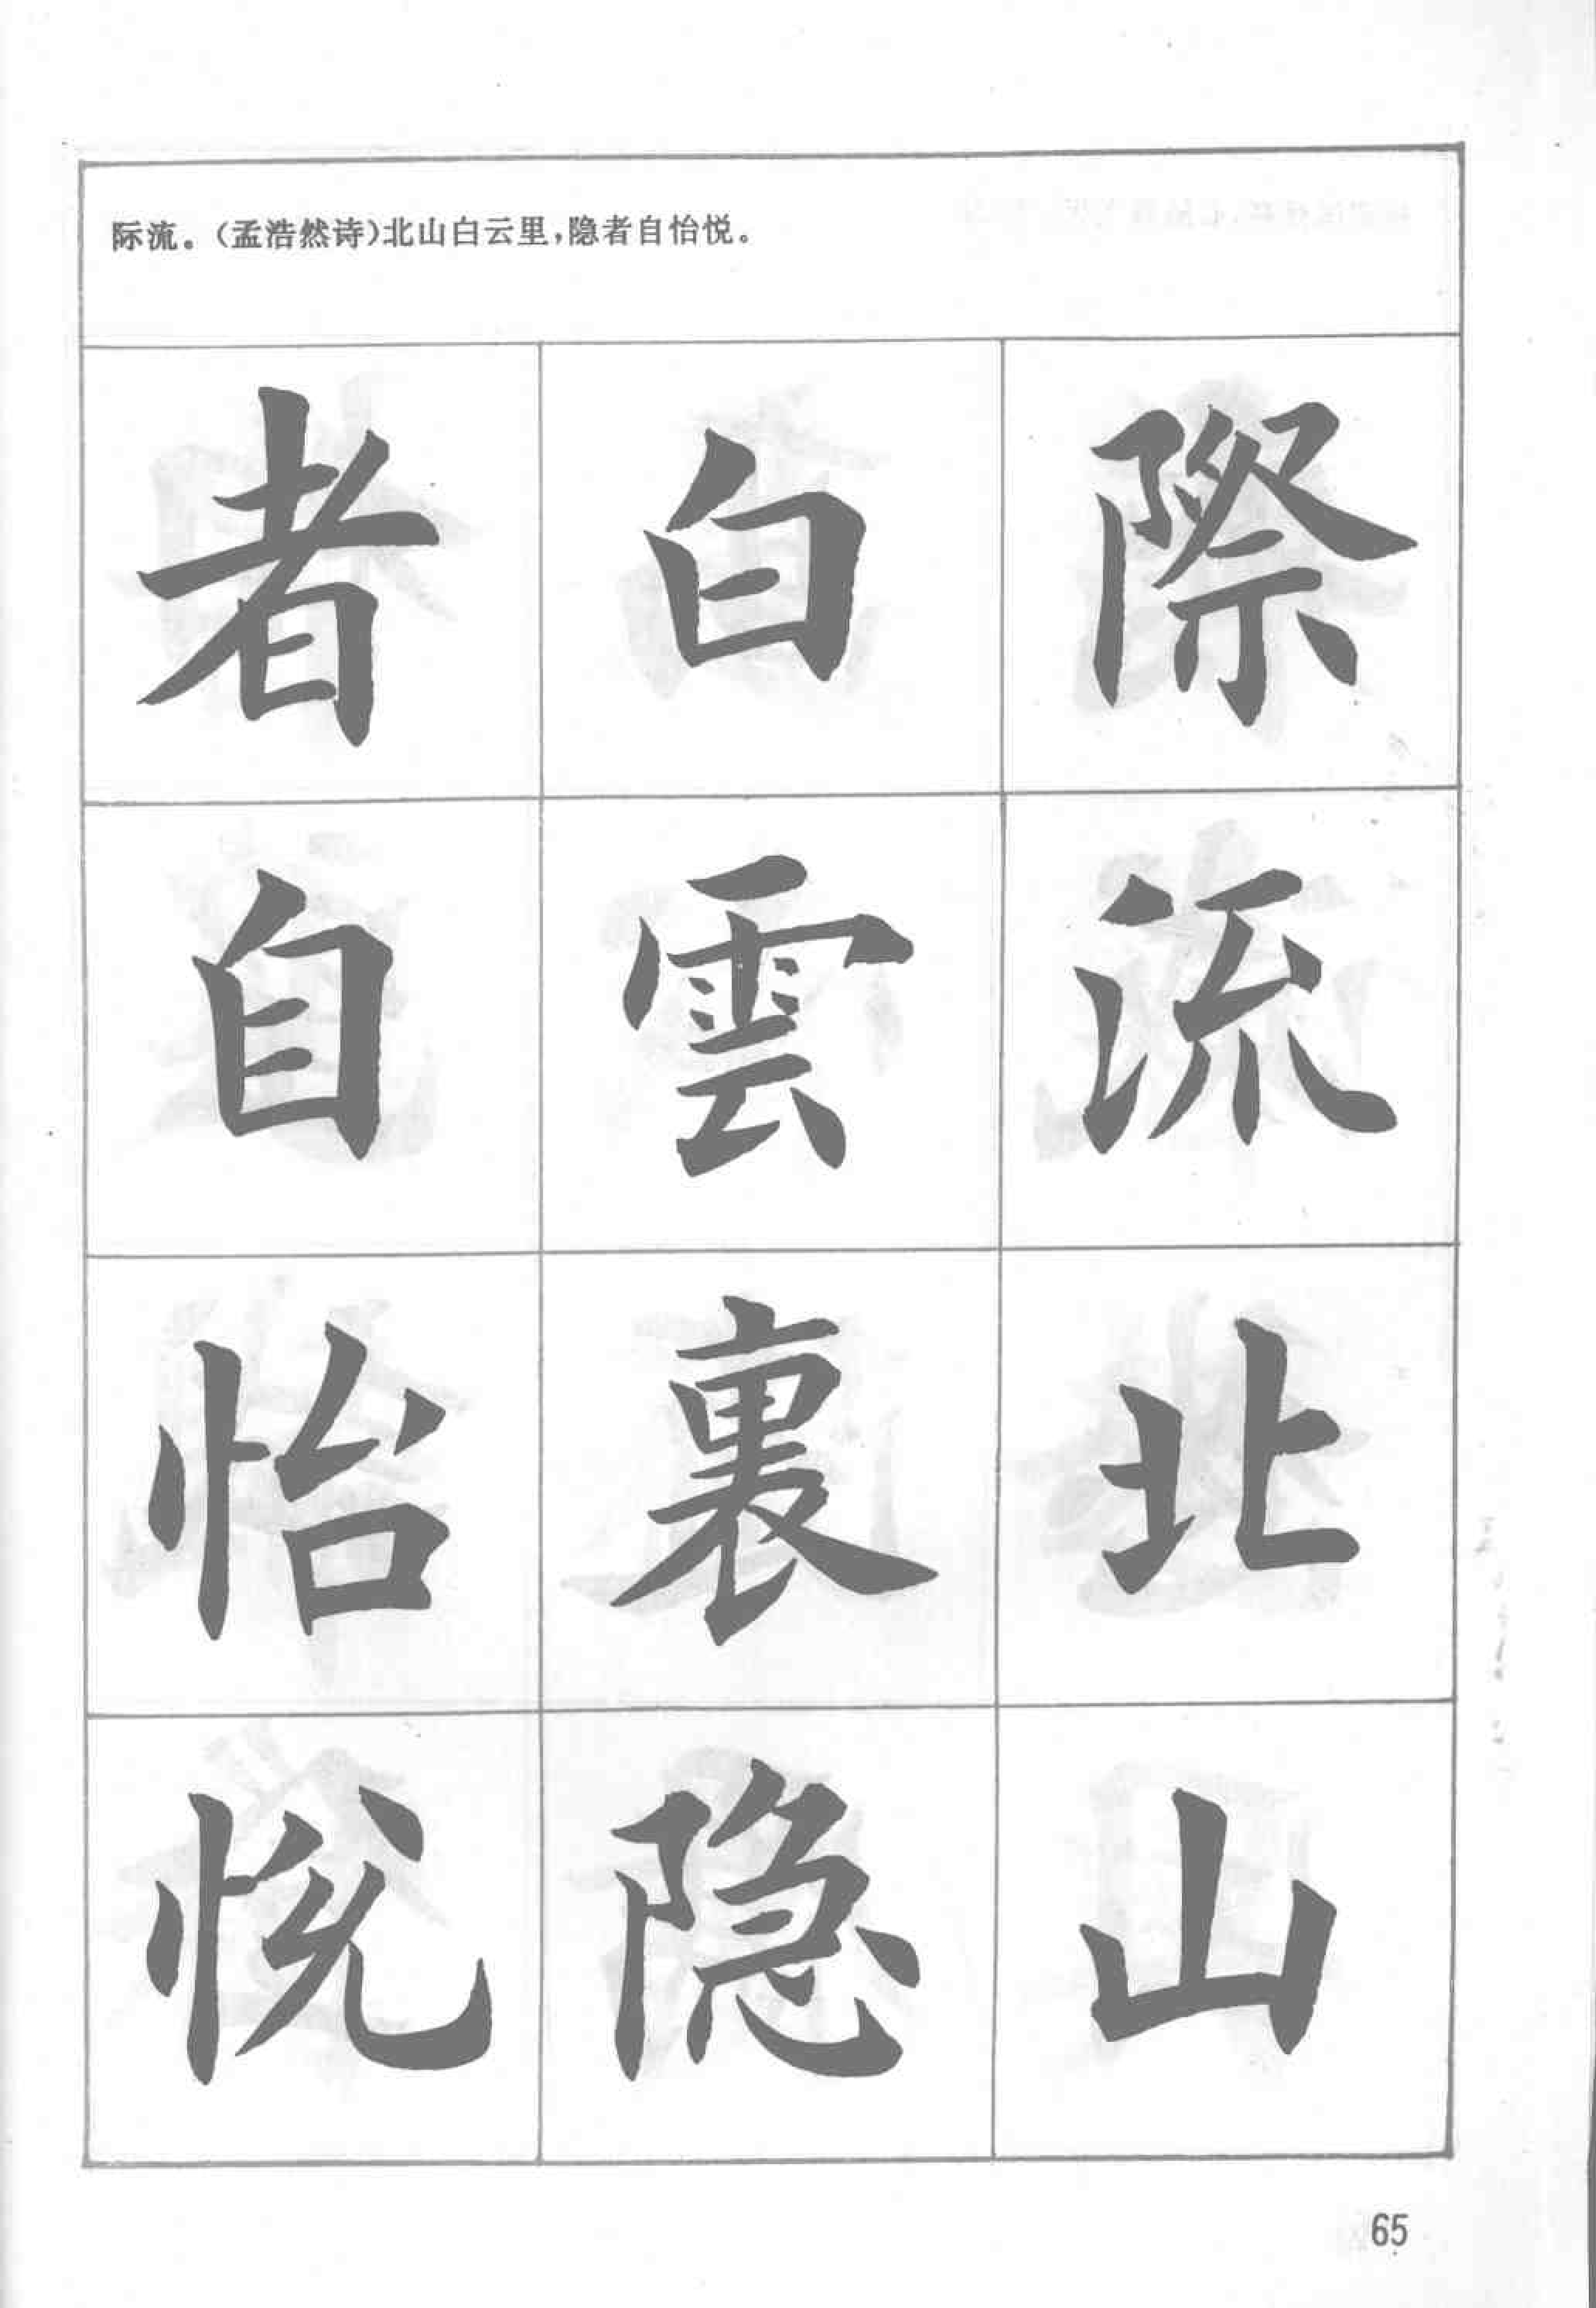 际流。(孟浩然诗)北山白云里,隐者自怡悦。
際流北山
白雲裏隐
者自怡悦
65